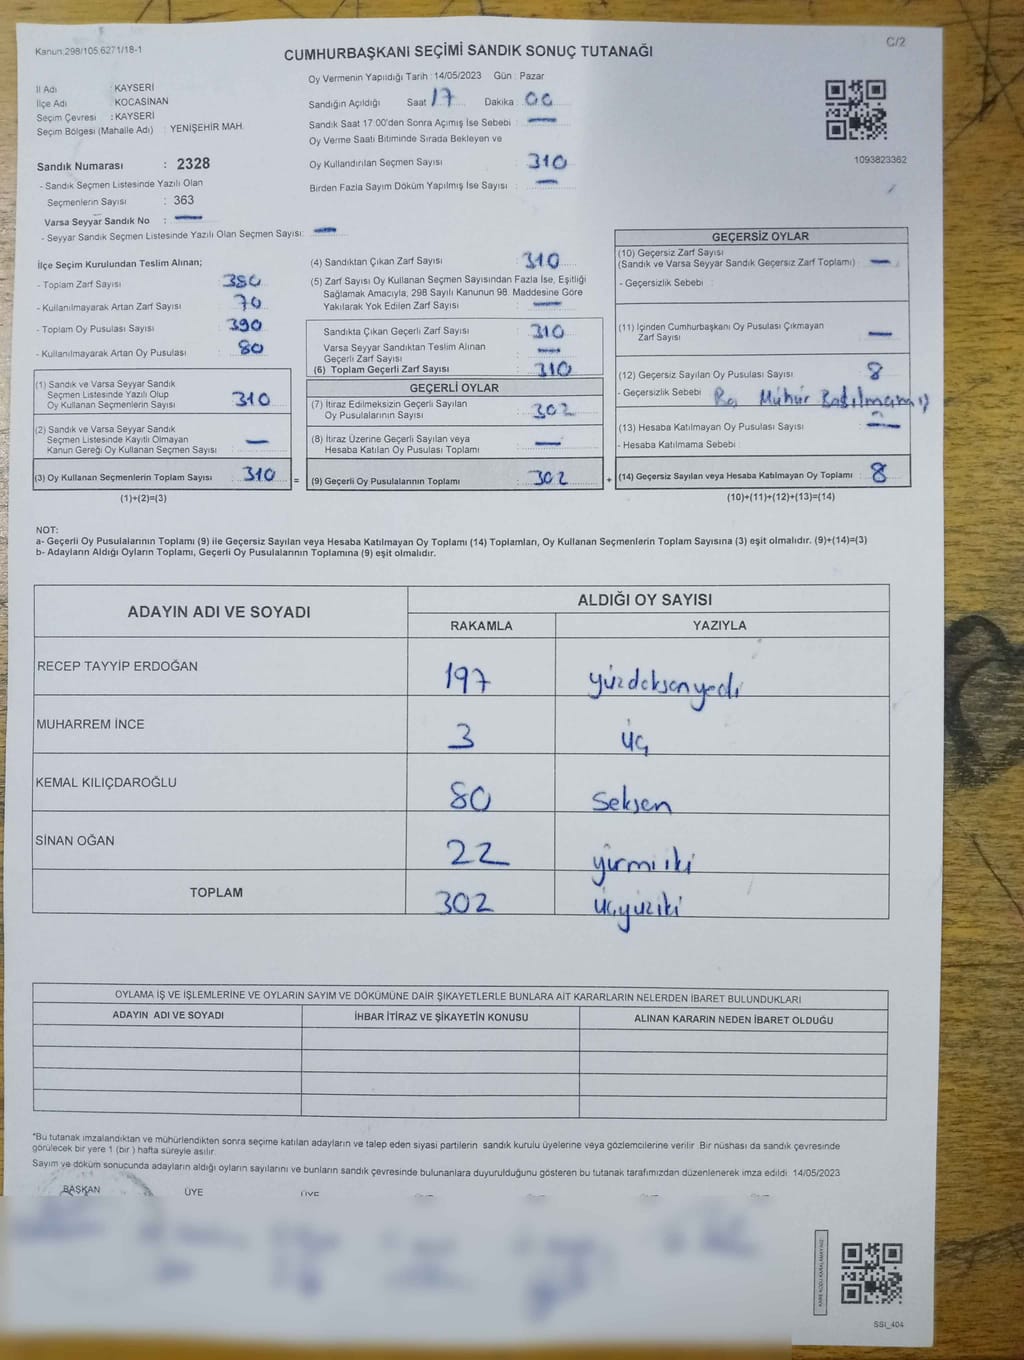 Kanun:298/105.6271/18-1
C/2
CUMHURBAŞKANI SEÇİMİ SANDIK SONUÇ TUTANAĞI
İl Adı : KAYSERİ
İlçe Adı KOCASİNAN
Seçim Çevresi : KAYSERİ
Seçim Bölgesi (Mahalle Adı) : YENİŞEHİR MAH.
Sandık Numarası : 2328
- Sandık Seçmen Listesinde Yazılı Olan
Seçmenlerin Sayısı : 363
Varsa Seyyar Sandık No : —
- Seyyar Sandık Seçmen Listesinde Yazılı Olan Seçmen Sayısı: —
Oy Vermenin Yapıldığı Tarih : 14/05/2023 Gün : Pazar
Sandığın Açıldığı Saat 17 Dakika 00
Sandık Saat 17:00'den Sonra Açımış İse Sebebi : —
Oy Verme Saati Bitiminde Sırada Bekleyen ve
Oy Kullandırılan Seçmen Sayısı : 310
Birden Fazla Sayım Döküm Yapılmış İse Sayısı : —
1093823362
İlçe Seçim Kurulundan Teslim Alınan;
- Toplam Zarf Sayısı : 380
- Kullanılmayarak Artan Zarf Sayısı : 70
- Toplam Oy Pusulası Sayısı : 390
- Kullanılmayarak Artan Oy Pusulası : 80
(1) Sandık ve Varsa Seyyar Sandık
Seçmen Listesinde Yazılı Olup
Oy Kullanan Seçmenlerin Sayısı : 310
(2) Sandık ve Varsa Seyyar Sandık
Seçmen Listesinde Kayıtlı Olmayan
Kanun Gereği Oy Kullanan Seçmen Sayısı : —
(3) Oy Kullanan Seçmenlerin Toplam Sayısı : 310 =
(1)+(2)=(3)
(4) Sandıktan Çıkan Zarf Sayısı : 310
(5) Zarf Sayısı Oy Kullanan Seçmen Sayısından Fazla İse, Eşitliği
Sağlamak Amacıyla, 298 Sayılı Kanunun 98. Maddesine Göre
Yakılarak Yok Edilen Zarf Sayısı : —
Sandıkta Çıkan Geçerli Zarf Sayısı : 310
Varsa Seyyar Sandıktan Teslim Alınan
Geçerli Zarf Sayısı : —
(6) Toplam Geçerli Zarf Sayısı : 310
GEÇERLİ OYLAR
(7) İtiraz Edilmeksizin Geçerli Sayılan
Oy Pusulalarının Sayısı : 302
(8) İtiraz Üzerine Geçerli Sayılan veya
Hesaba Katılan Oy Pusulası Toplamı : —
(9) Geçerli Oy Pusulalarının Toplamı : 302 +
GEÇERSİZ OYLAR
(10) Geçersiz Zarf Sayısı
(Sandık ve Varsa Seyyar Sandık Geçersiz Zarf Toplamı) : —
- Geçersizlik Sebebi :
(11) İçinden Cumhurbaşkanı Oy Pusulası Çıkmayan
Zarf Sayısı : —
(12) Geçersiz Sayılan Oy Pusulası Sayısı : 8
- Geçersizlik Sebebi : Mühür Basılmamış
(13) Hesaba Katılmayan Oy Pusulası Sayısı : —
- Hesaba Katılmama Sebebi :
(14) Geçersiz Sayılan veya Hesaba Katılmayan Oy Toplamı : 8
(10)+(11)+(12)+(13)=(14)
NOT:
a- Geçerli Oy Pusulalarının Toplamı (9) ile Geçersiz Sayılan veya Hesaba Katılmayan Oy Toplamı (14) Toplamları, Oy Kullanan Seçmenlerin Toplam Sayısına (3) eşit olmalıdır. (9)+(14)=(3)
b- Adayların Aldığı Oyların Toplamı, Geçerli Oy Pusulalarının Toplamına (9) eşit olmalıdır.
ADAYIN ADI VE SOYADI ALDIĞI OY SAYISI
RAKAMLA YAZIYLA
RECEP TAYYİP ERDOĞAN 197 yüzdoksanyedi
MUHARREM İNCE 3 üç
KEMAL KILIÇDAROĞLU 80 Seksen
SİNAN OĞAN 22 yirmi iki
TOPLAM 302 üçyüziki
OYLAMA İŞ VE İŞLEMLERİNE VE OYLARIN SAYIM VE DÖKÜMÜNE DAİR ŞİKAYETLERLE BUNLARA AİT KARARLARIN NELERDEN İBARET BULUNDUKLARI
ADAYIN ADI VE SOYADI İHBAR İTİRAZ VE ŞİKAYETİN KONUSU ALINAN KARARIN NEDEN İBARET OLDUĞU
*Bu tutanak imzalandıktan ve mühürlendikten sonra seçime katılan adayların ve talep eden siyasi partilerin sandık kurulu üyelerine veya gözlemcilerine verilir. Bir nüshası da sandık çevresinde
görülecek bir yere 1 (bir ) hafta süreyle asılır.
Sayım ve döküm sonucunda adayların aldığı oyların sayılarını ve bunların sandık çevresinde bulunanlara duyurulduğunu gösteren bu tutanak tarafımızdan düzenlenerek imza edildi. 14/05/2023
BAŞKAN ÜYE ÜYE
KARE KODU KARALAMAYINIZ
SSI_404